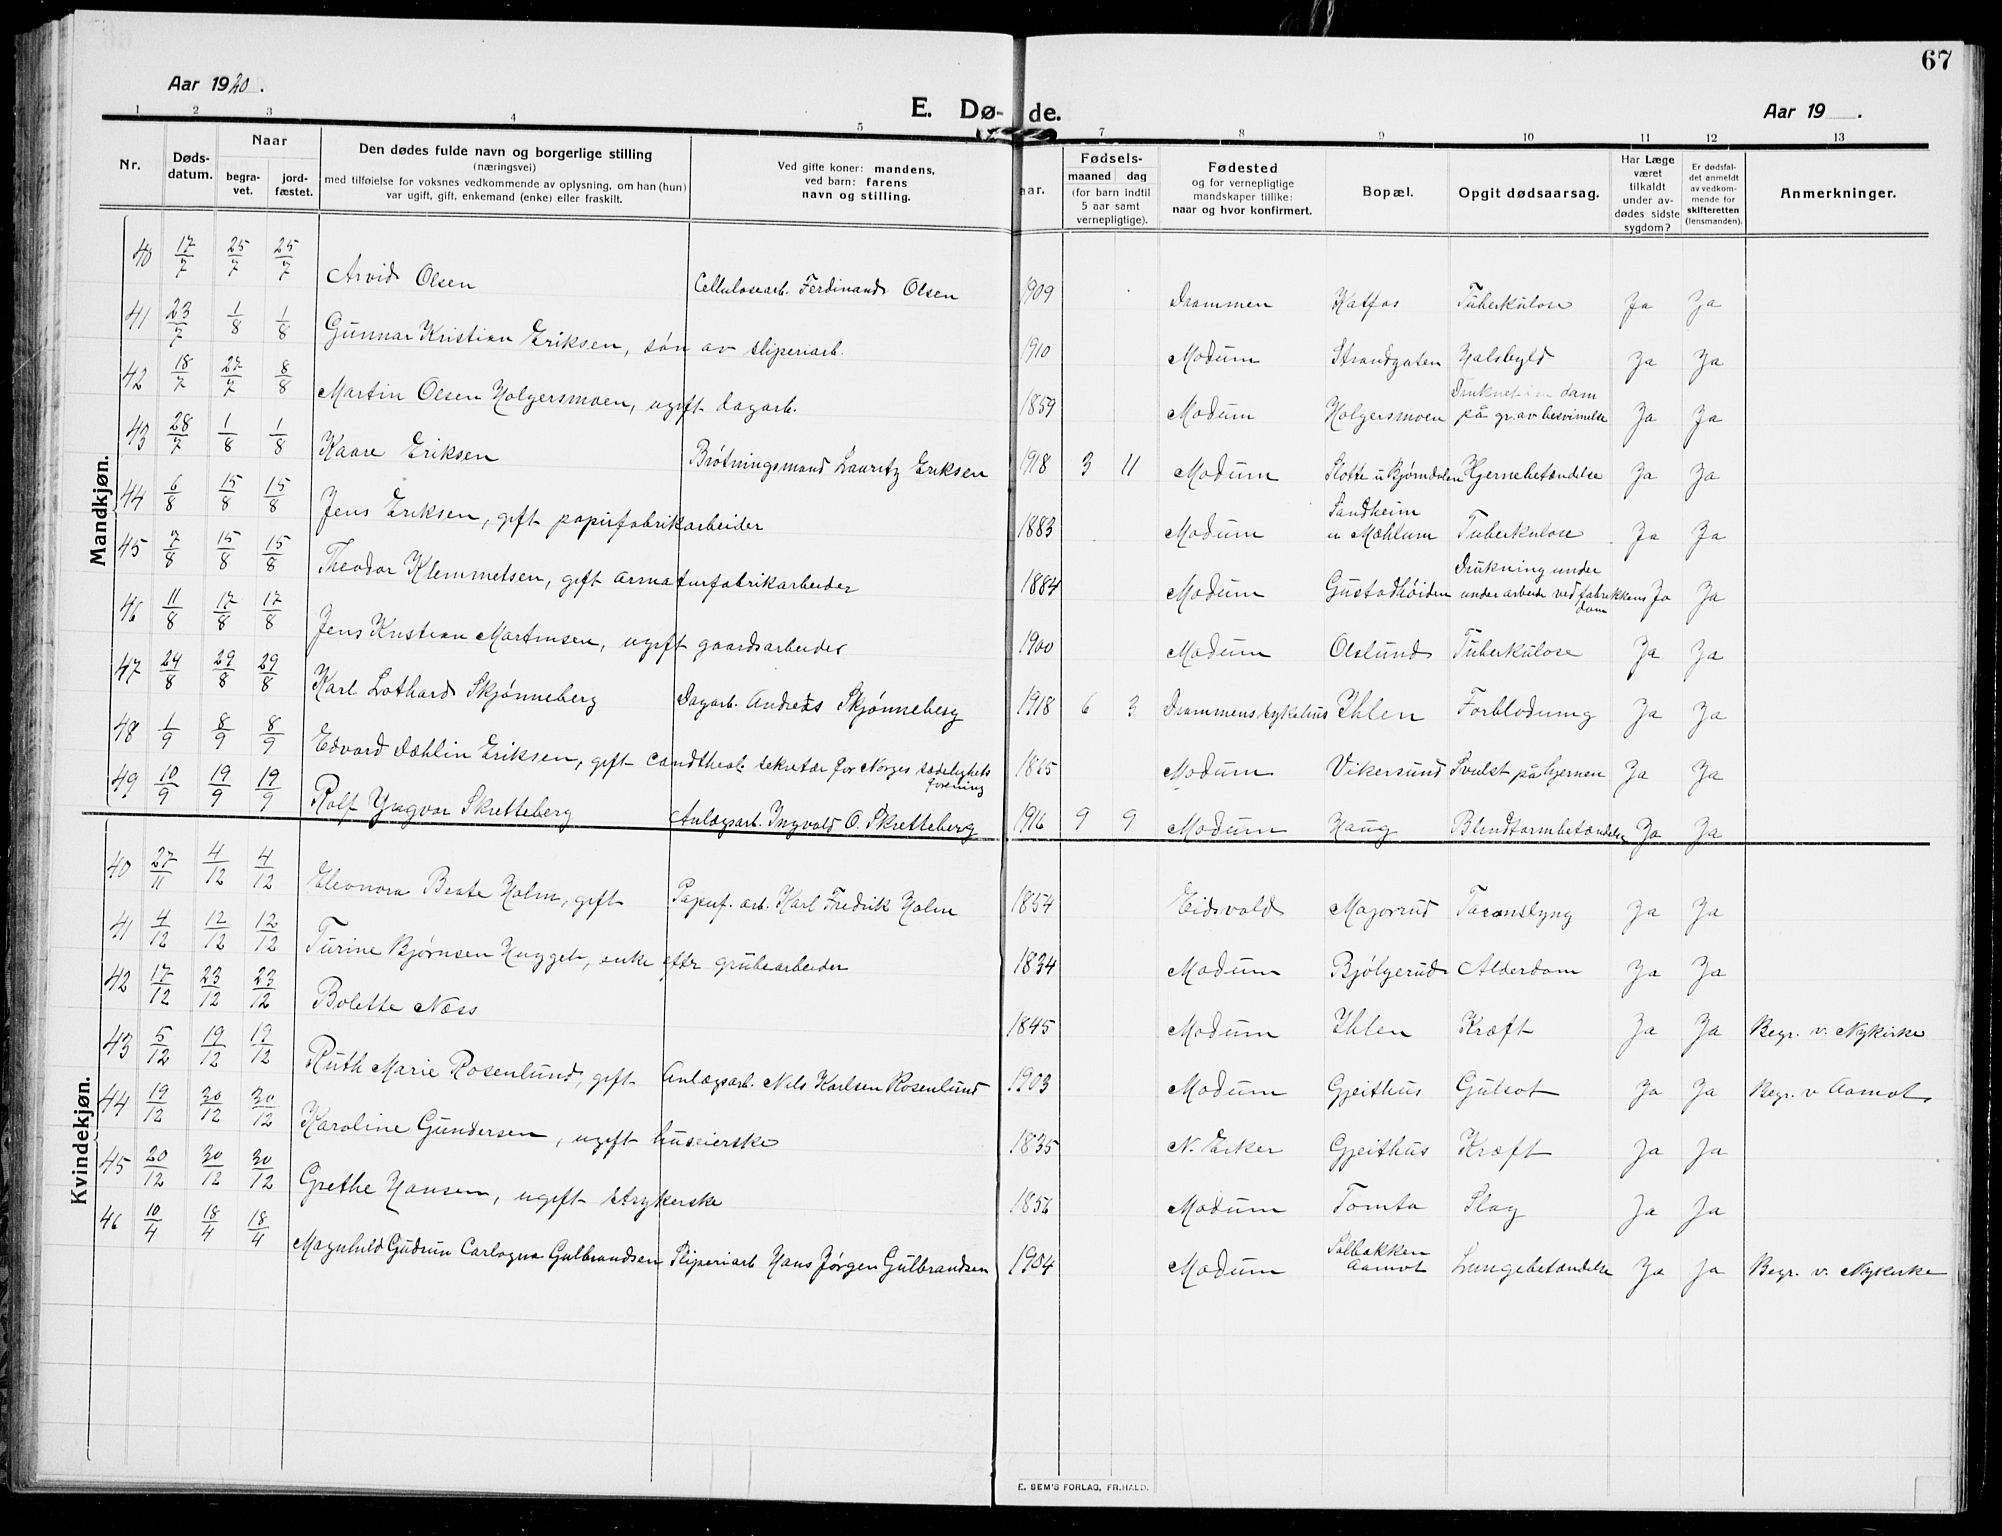 67
Aar 1920.
E. Dø- de.
Aar 19 .
1 2 3 4 5 7 8 9 10 11 12 13
Nr.
Døds-
datum.
Naar
begra-
vet.
jord-
fæstet.
Den dødes fulde navn og borgerlige stilling
(næringsvei)
med tilføielse for voksnes vedkommende av oplysning, om han (hun)
var ugift, gift, enkemand (enke) eller fraskilt.
Ved gifte koner: mandens,
ved barn: farens
navn og stilling.
aar.
Fødsels-
maaned dag
(for barn indtil
5 aar samt
vernepligtige).
Fødested
og for vernepligtige
mandskaper tillike:
naar og hvor konfirmert.
Bopæl.
Opgit dødsaarsag.
Har Læge
været
tilkaldt
under av-
dødes sidste
sygdom?
Er dødsfal-
det anmeldt
av vedkom-
mende for
skifteretten
(lensmanden).
Anmerkninger.
Mandkjøn.
40 17/7 25/7 25/7 Arvid Olsen Cellulosearb. Ferdinand Olsen 1909 Drammen Katfos Tuberkulose Ja Ja
41 23/7 1/8 1/8 Gunnar Kristian Eriksen, søn av sliperiarb. 1910 Modum Strandgaten Halsbyld Ja Ja
42 18/7 27/7 8/8 Martin Olsen Holgersmoen, ugift dagarb. 1859 Modum Holgersmoen Druknet i en dam
på gr. av besvimelse Ja Ja
43 28/7 1/8 1/8 Kaare Eriksen Brøtningsmand Lauritz Eriksen 1918 3 11 Modum Slotte u Bjørndalen Hjernebetændelse Ja Ja
44 6/8 15/8 15/8 Jens Eriksen, gift papirfabrikarbeider 1883 Modum Sandheim
u Mæhlum Tuberkulose Ja Ja
45 7/8 15/8 15/8 Theodor Klemmetsen, gift armaturfabrikarbeider 1884 Modum Gustadhøiden Drukning under
under arbeide ved fabrikkens
dam Ja Ja
46 11/8 17/8 17/8 Jens Kristian Martinsen, ugift gaardsarbeider 1900 Modum Olslund Tuberkulose Ja Ja
47 24/8 29/8 29/8 Karl Lothard Skjønneberg Dagarb. Andreas Skjønneberg 1918 6 3 Drammens sykehus Ihlen Forblødning Ja Ja
48 1/9 8/9 8/9 Edvard Dæhlin Eriksen, gift cand theol. sekretær for Norges sædelighets
forening 1865 Modum Vikersund Svulst på hjernen Ja Ja
49 10/9 19/9 19/9 Rolf Yngvar Skretteberg Anlægsarb. Ingvald O. Skretteberg 1916 9 9 Modum Haug Blindtarmbetændelse Ja Ja
Kvindekjøn.
40 27/11 4/12 4/12 Eleonora Beate Holm, gift Papirf. arb. Karl Fredrik Holm 1854 Eidsvold Magorrud Ja Ja
41 4/12 12/12 12/12 Turine Bjørnsen Hugget, enke efter grubearbeider 1834 Modum Bjølgerud Alderdom Ja Ja
42 17/12 23/12 23/12 Bolette Næss 1845 Modum Ihlen Kræft Ja Ja Begr. v. Nykirke
43 5/12 19/12 19/12 Ruth Marie Rosenlund, gift Anlægsarb. Nils Karlsen Rosenlund 1903 Modum Gjeithus Gulsot Ja Ja Begr. v Aamot.
44 19/12 30/12 30/12 Karoline Gundersen, ugift huseierske 1835 N. Eker Gjeithus Kræft Ja Ja
45 20/12 30/12 30/12 Grethe Hansen, ugift strykerske 1856 Modum Tomta Slag Ja Ja
46 10/4 18/4 18/4 Magnhild Gudrun Carlogna Gulbrandsen Sliperiarb Hans Jørgen Gulbrandsen 1904 Modum Solbakken
Aamot Lungebetændelse Ja Ja Begr. v. Nykirke
E. SEM'S FORLAG, FR.HALD.